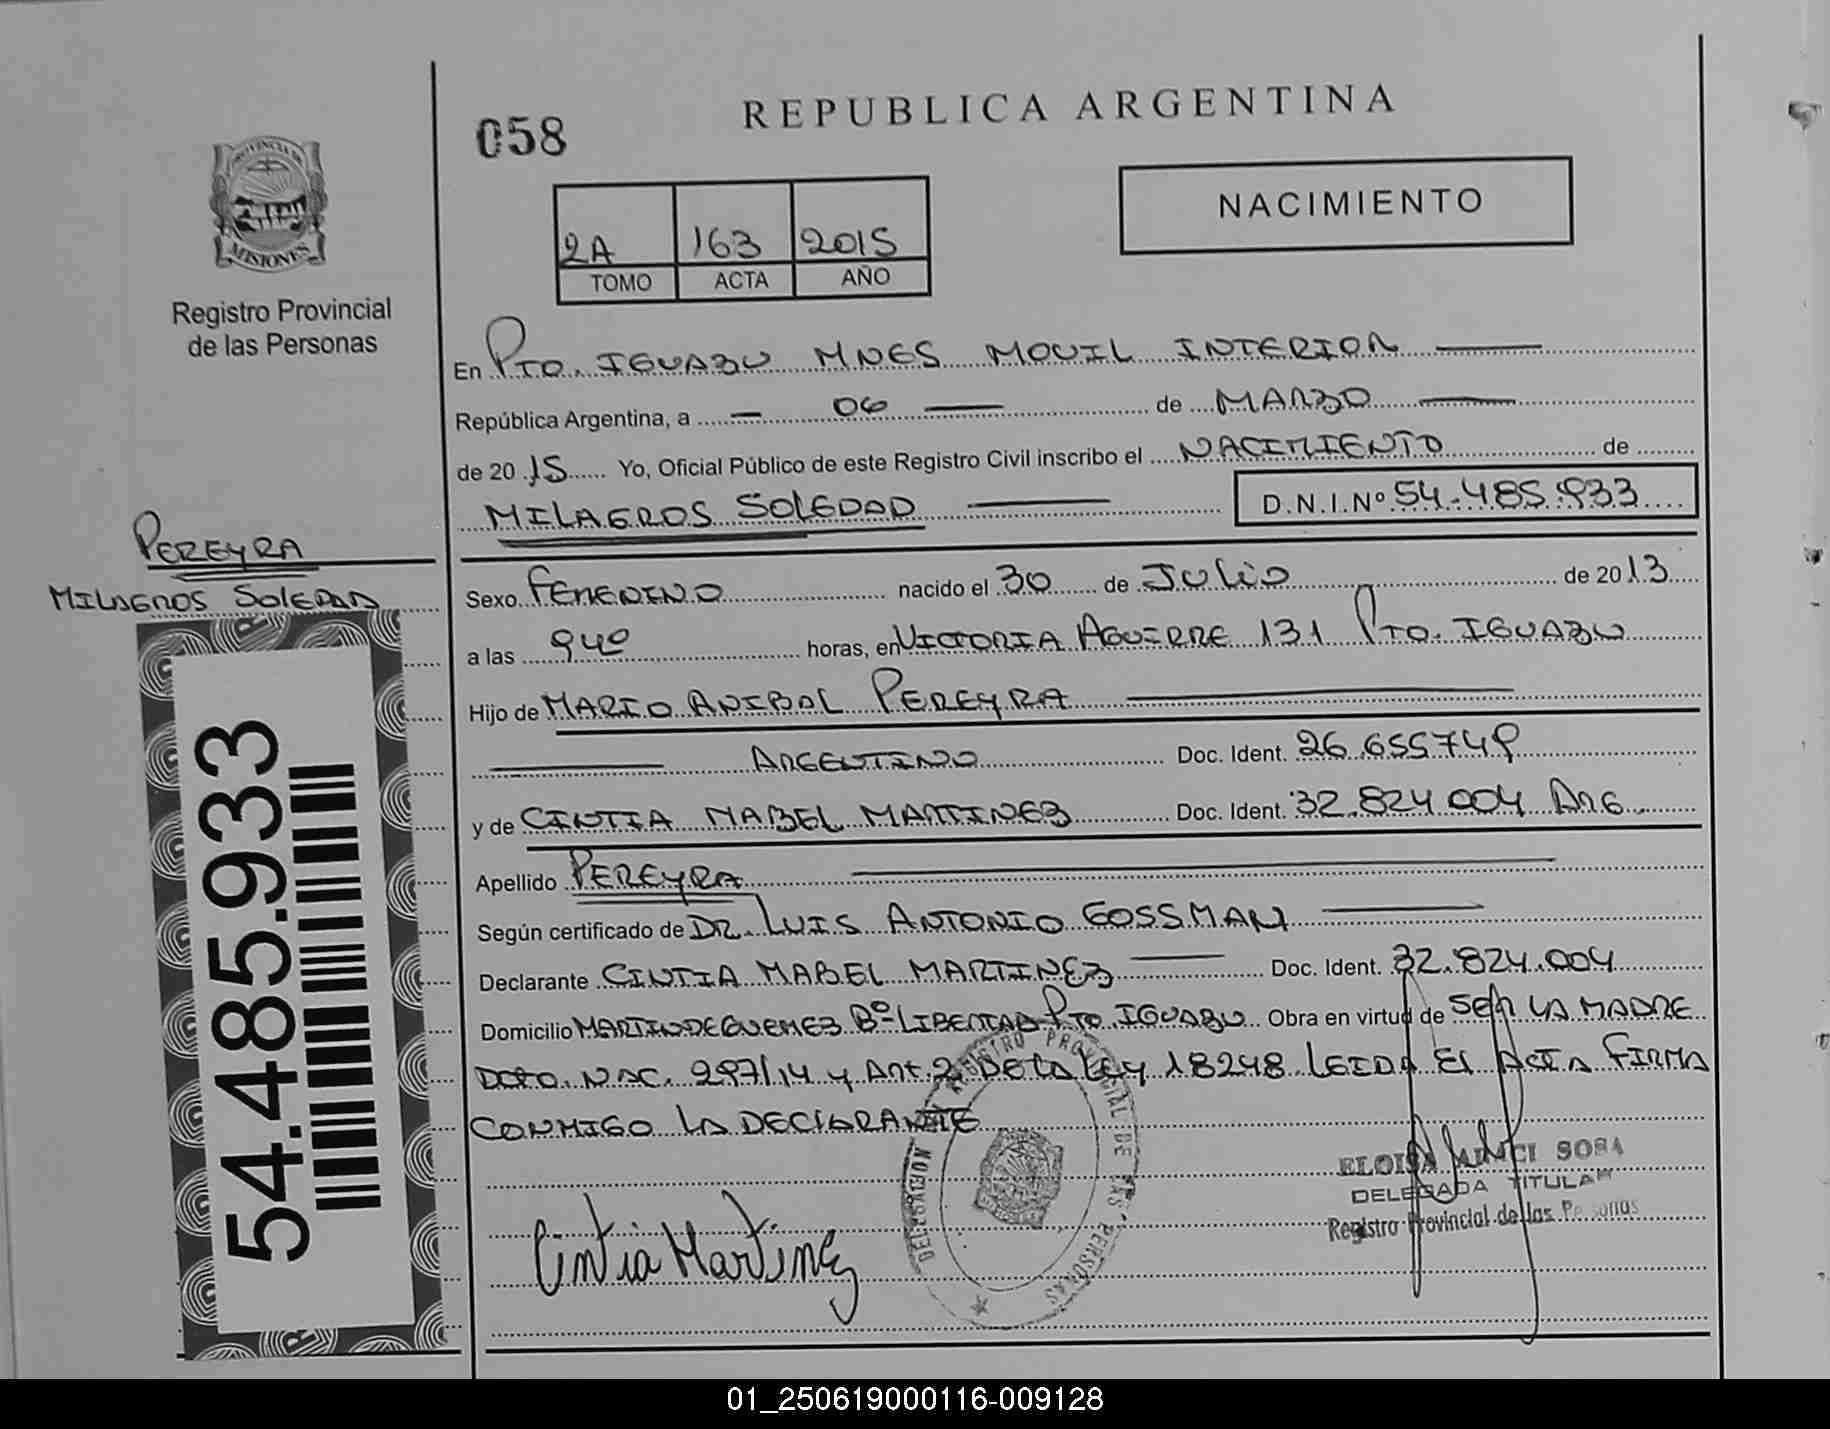 REPUBLICA ARGENTINA
058
NACIMIENTO
PROVINCIA DE
MISIONES
Registro Provincial
de las Personas
2A 163 2015
TOMO ACTA AÑO
En PTO. IGUAZU MNES MOVIL INTERIOR
República Argentina, a 06 de MARZO
de 20 15 Yo, Oficial Público de este Registro Civil inscribo el NACIMIENTO de
MILAGROS SOLEDAD D.N.I.Nº 54.485.933
PEREYRA
MILAGROS SOLEDAD
54.485.933
Sexo FEMENINO nacido el 30 de JULIO de 2013
a las 940 horas, en VICTORIA AGUIRRE 131 PTO. IGUAZU
Hijo de MARIO ANIBAL PEREYRA
ARGENTINO Doc. Ident. 26.655749
y de CINTIA MABEL MARTINEZ Doc. Ident. 32.824.004 ARG
Apellido PEREYRA
Según certificado de DR. LUIS ANTONIO GOSSMAN
Declarante CINTIA MABEL MARTINEZ Doc. Ident. 32.824.004
Domicilio MARTIN DE GUEMEZ Bº LIBERTAD PTO. IGUAZU Obra en virtud de SER LA MADRE
DCTO. NAC. 297/14 y ART. 2 DE LA LEY 18248 LEIDA EL ACTA FIRMA
CONMIGO LA DECLARANTE
DELEGACION REGISTRO PROVINCIAL DE LAS PERSONAS
Cintia Martinez
ELOISA SOSA
DELEGADA TITULAR
Registro Provincial de las Personas
01_250619000116-009128